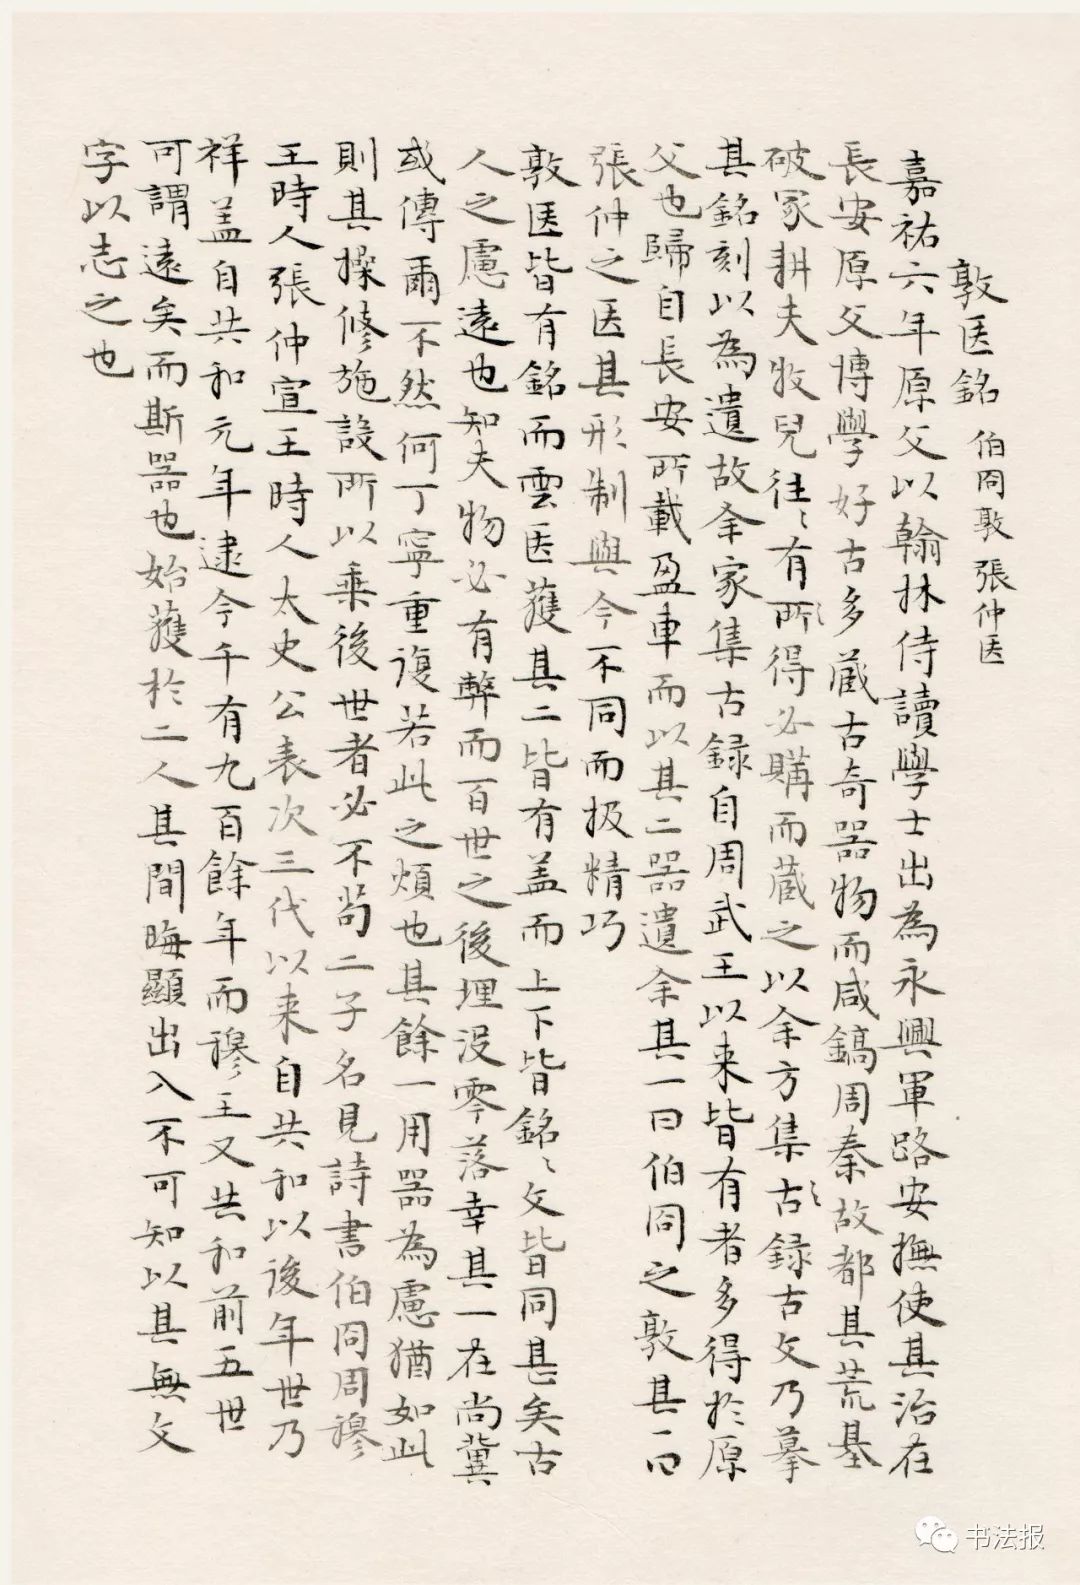 敦医銘 伯冏敦 張仲医
嘉祐六年原父以翰林侍讀學士出為永興軍路安撫使其治在
長安原父博學好古多蔵古奇器物而咸鎬周秦故都其荒基
破冢耕夫牧兒往〻有所〻得必購而蔵之以余方集〻古録古文乃摹
其銘刻以為遺故余家集古録自周武王以来皆有者多得於原
父也歸自長安所載盈車而以其二器遺余其一曰伯冏之敦其一曰
張仲之医其形制與今不同而极精巧
敦医皆有銘而雲医蒦其二皆有盖而上下皆銘〻文皆同甚矣古
人之慮遠也知夫物必有弊而百世之後埋没零落幸其一在尚冀
或傳爾不然何丁寧重復若此之煩也其餘一用器為慮猶如此
則其操修施設所以乗後世者必不苟二子名見詩書伯冏周穆
王時人張仲宣王時人太史公表次三代以来自共和以後年世乃
祥盖自共和元年逮今千有九百餘年而穆王又共和前五世
可謂遠矣而斯器也始蒦於二人其間晦顯出入不可知以其無文
字以志之也
书法报